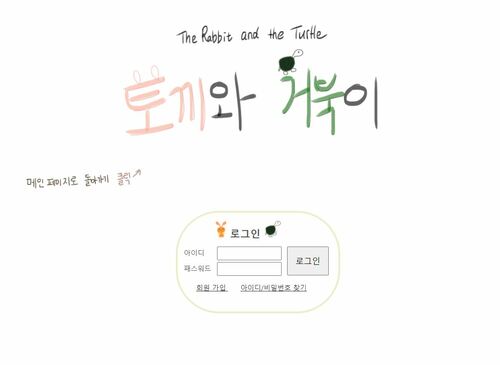 The Rabbit and the Turtle
토끼와 거북이
메인 페이지로 돌아가기 클릭
로그인
아이디
패스워드
로그인
회원 가입 아이디/비밀번호 찾기